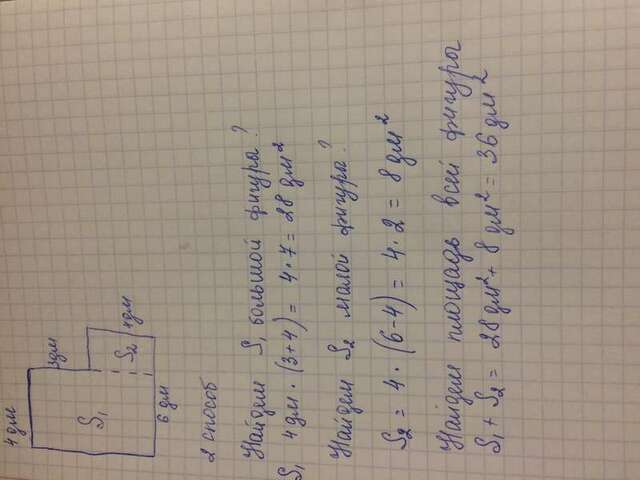 4 дм
3дм
S₁
S₂
4дм
6 дм
2 способ
Найдем S₁ большой фигуры?
S₁ 4 дм · (3+4) = 4 · 7 = 28 дм²
Найдем S₂ малой фигуры?
S₂ = 4 · (6-4) = 4 · 2 = 8 дм²
Найдем площадь всей фигуры
S₁ + S₂ = 28 дм² + 8 дм² = 36 дм²